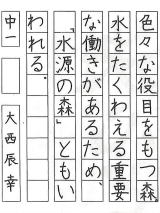 色々な役目をもつ森。
水をたくわえる重要
な働きがあるため、
「水源の森」ともい
われる。
中一
大西辰幸